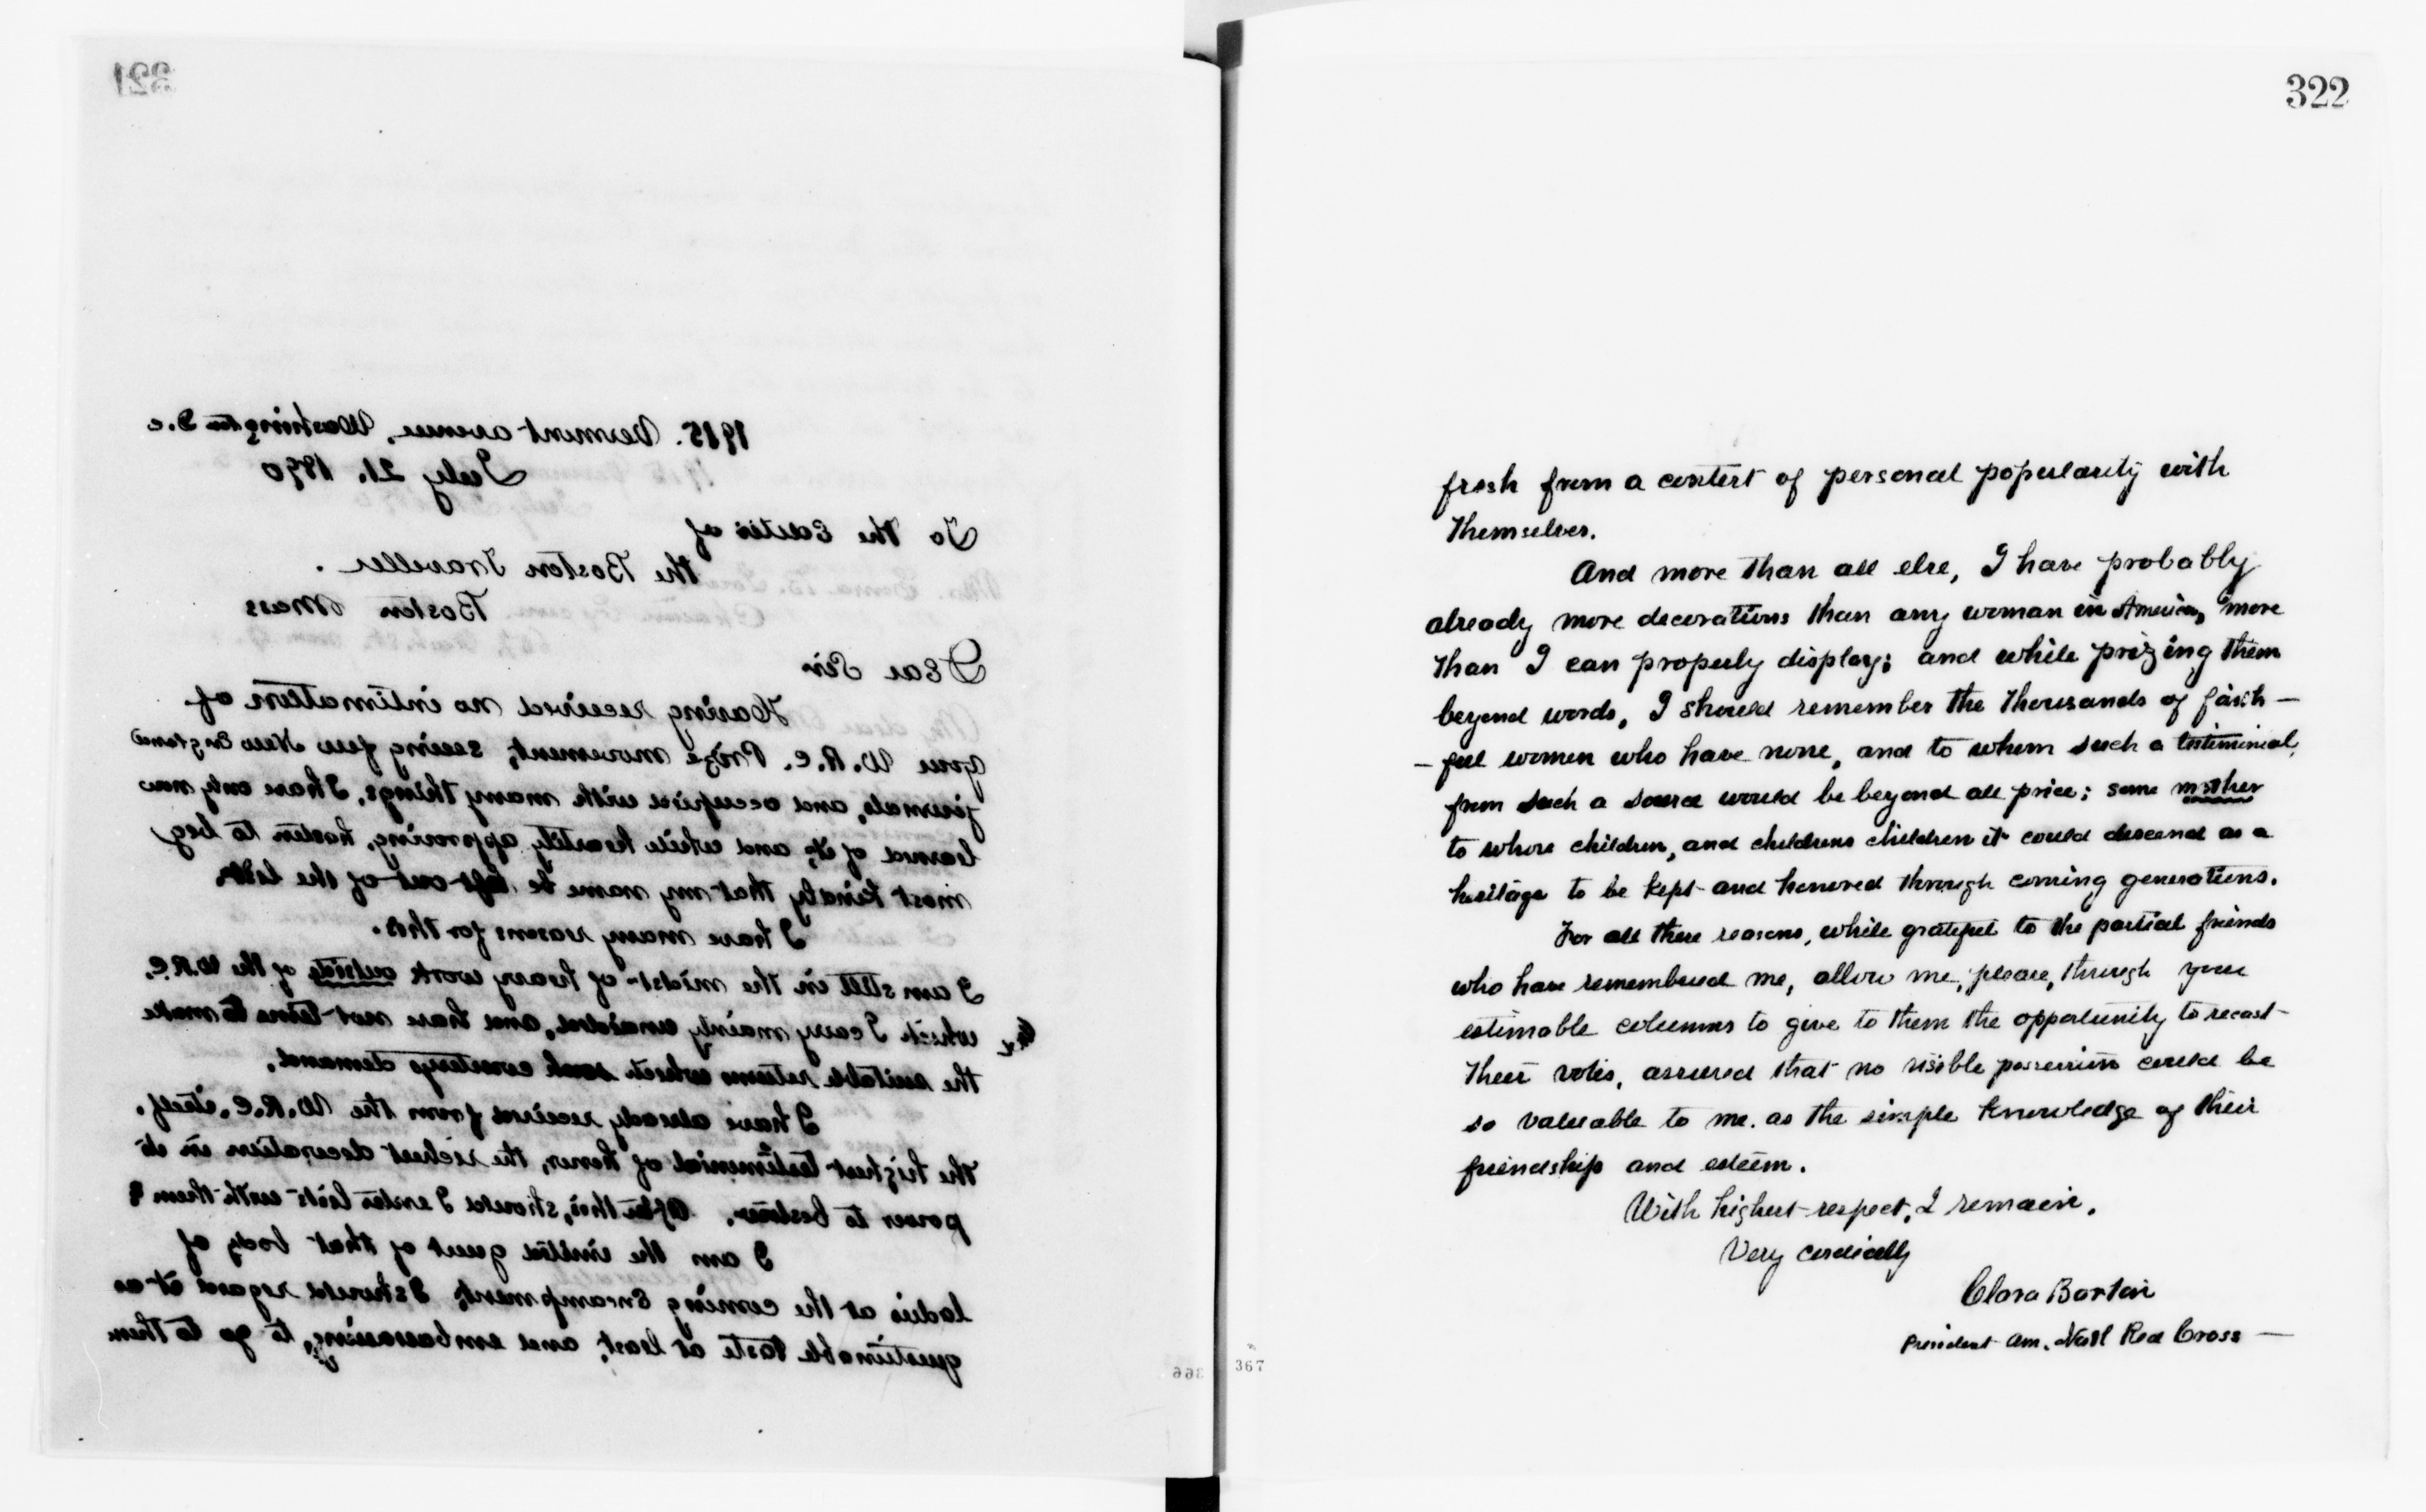 321
1915. Vermont avenue, Washington D.C
July 21. 1890
To the Editor of
the Boston Traveller.
Boston Mass
Dear Sir
Having received no intimation of
your W.R.C. Prize movement; seeing few New England
journals, and occupied with many things, I have only now
learned of it; and while heartily approving, hasten to beg
most kindly that my name be left out of the lists.
I have many reasons for this.
I am still in the midst of heavy work outside of the W.R.C.
which I carry mainly unaided, and have not time to make
the suitable returns which such courtesys demand.
I have already received from the W.R.C. itself.
the highest testimonial of honor, the richest decoration in its
power to bestow. After this, should I enter lists with them?
I am the invited guest of that body of
ladies at the coming Encampment; I should regard it as
questionable taste at least; and embarrassing, to go to them
366
322
fresh from a contest of personal popularity with
themselves.
And more than all else, I have probably
already more decorations than any woman in America, more
than I can properly display; and while prizing them
beyond words, I should remember the thousands of faith –
– ful women who have none, and to whom such a testimonial,
from such a source would be beyond all price; some mother
to whose children, and childrens children it could descend as a
heritage to be kept and honored through coming generations.
For all these reasons, while grateful to the partial friends
who have remembered me, allow me, please, through your
estimable columns to give to them the opportunity to recast
their votes, assured that no visible possession could be
so valuable to me. as the simple knowledge of their
friendship and esteem.
With highest respect, I remain.
Very cordially
Clara Barton
President Am. Natl Red Cross —
367